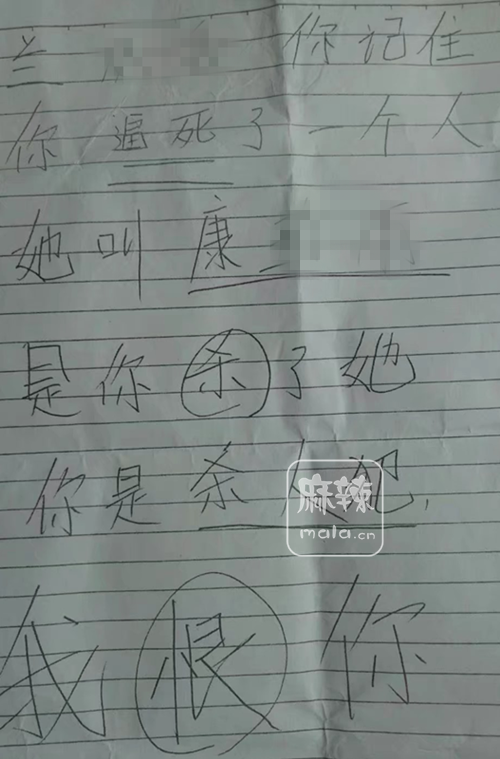 兰 你记住
你逼死了一个人
她叫康
是你杀了她
你是杀人犯,
我恨你
麻辣
mala.cn